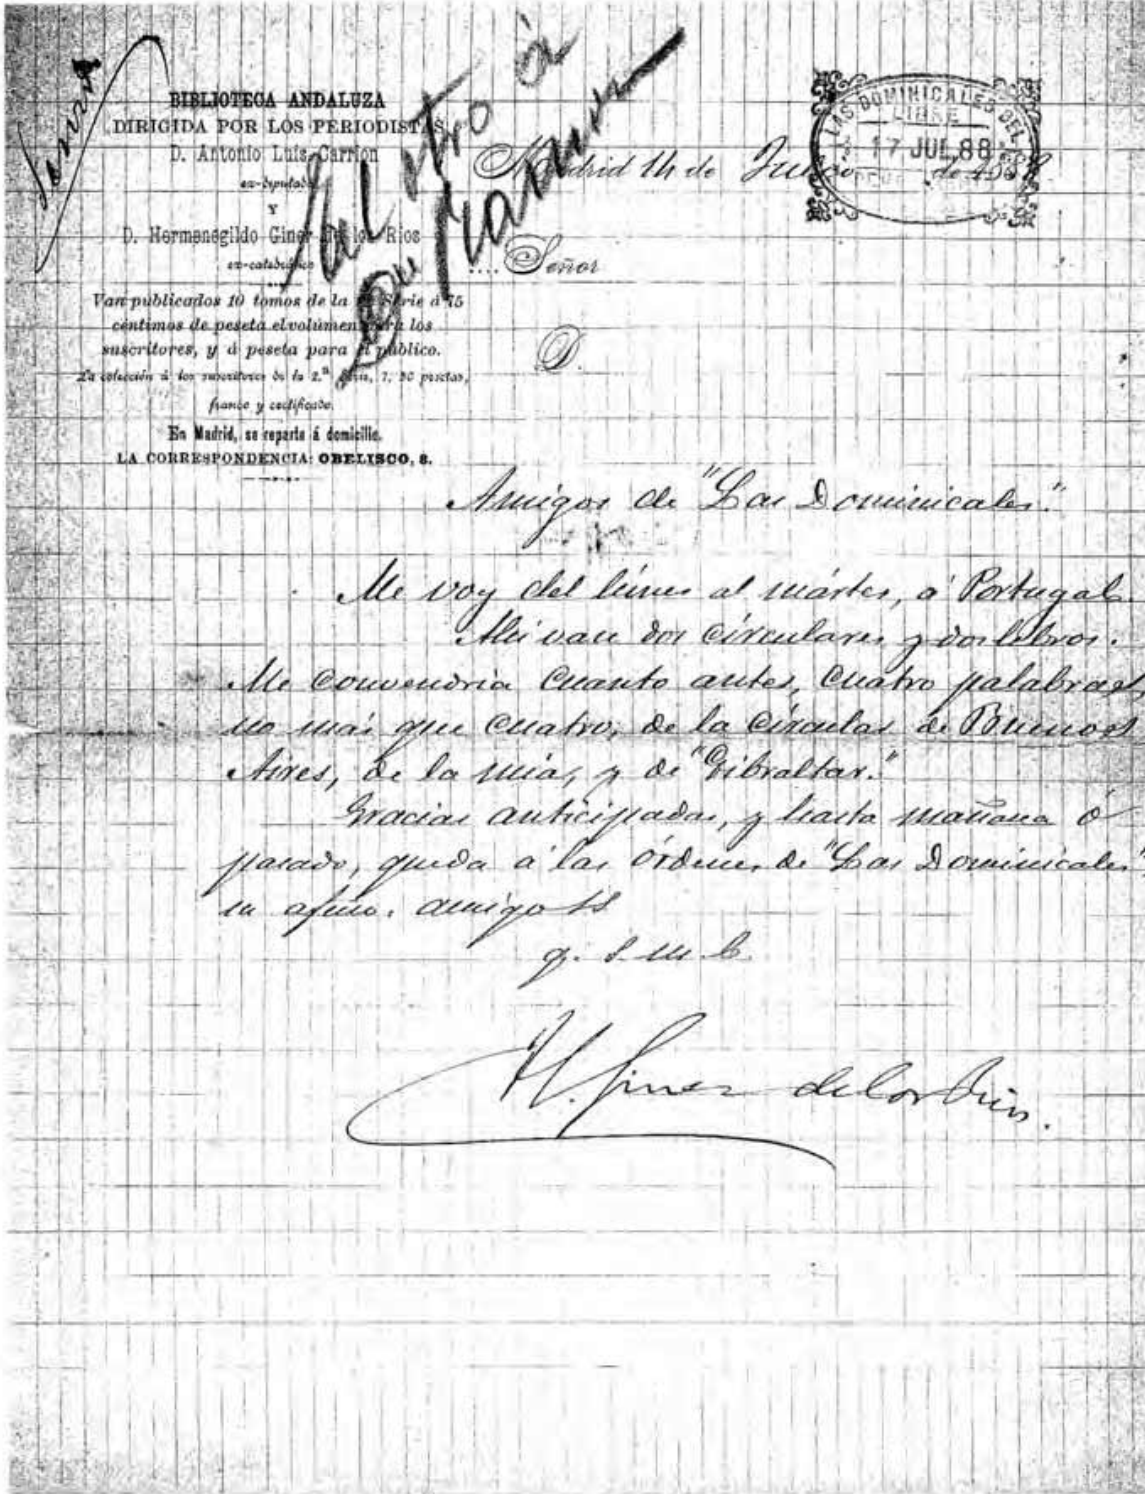 BIBLIOTECA ANDALUZA
DIRIGIDA POR LOS PERIODISTAS
D. Antonio Luis Carrión
ex-diputado
Y
D. Hermenegildo Giner de los Rios
ex-catedrático
Van publicados 10 tomos de la Serie á 75
céntimos de peseta el volúmen para los
suscritores, y á peseta para el público.
La colección á los suscritores de la 2.ª Serie, 7,50 pesetas,
franco y certificado.
En Madrid, se reparte á domicilio.
LA CORRESPONDENCIA: OBELISCO, 8.
LAS DOMINICALES DEL
LIBRE
17 JUL 88
Madrid 14 de de
Señor
D.
Amigos de "Las Dominicales."
Me voy del lúnes al mártes, á Portugal.
Ahí van dos circulares y dos libros.
Me convendria cuanto antes, cuatro palabras,
no más que cuatro, de la circular de Buenos
Aires, de la mia, y de "Gibraltar."
Gracias anticipadas, y hasta mañana ó
pasado, queda á las órdenes de "Las Dominicales",
su afmo. amigo SS
q. s. m. b.
H. Giner de los Rios.